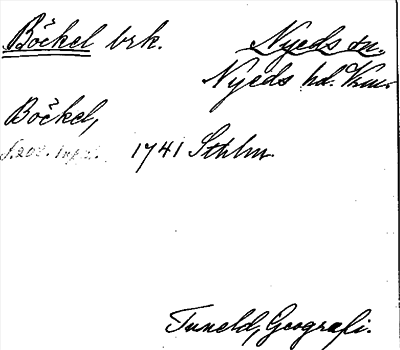 Böckel brk. Nyeds sn.
Nyeds hd. Vrml.
Böckel,
1741 Sthlm.
Tuneld, Geografi.